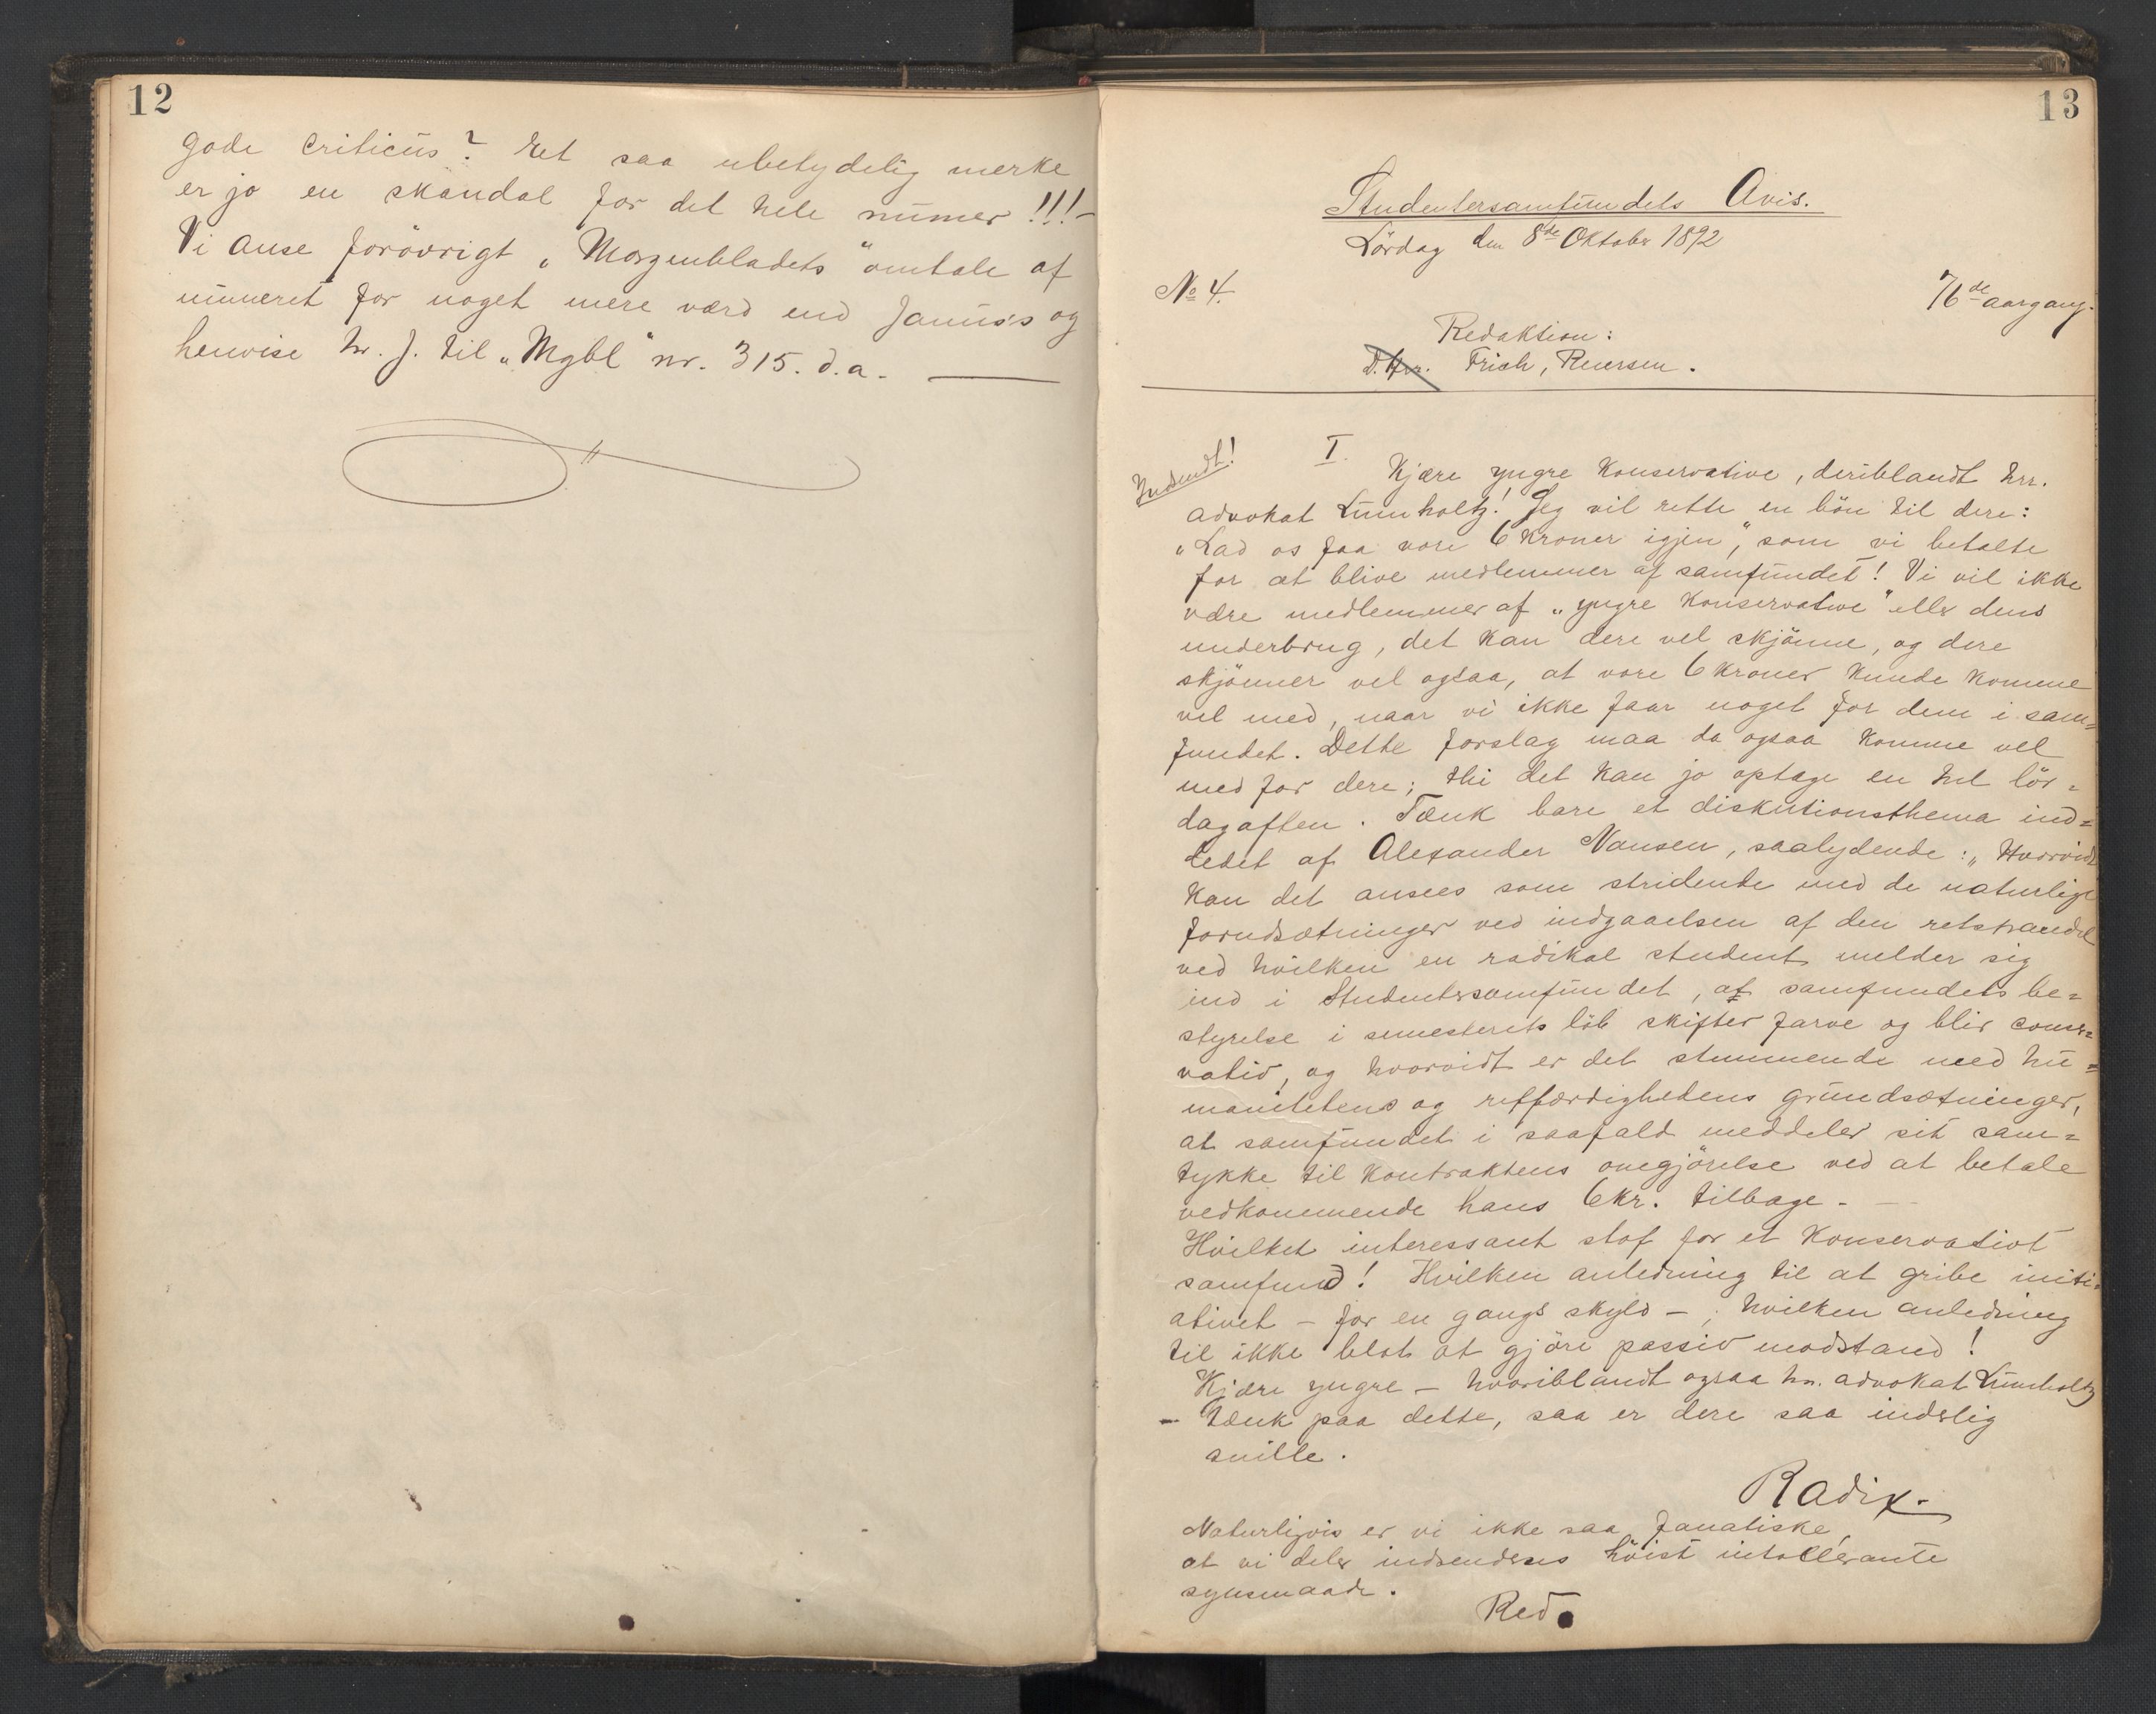 12
gode criticus? Et saa ubetydelig merke
er jo en skandal for det hele numer!!!-
Vi anse forövrigt „Morgenbladets" omtale af
numeret for noget mere værd end Janus's og
henvise hr. J. til „Mgbl" nr. 315. d.a. —
13
Studentersamfundets Avis.
Lördag den 8de Oktober 1892
No 4.
76de aargang.
Redaktion:
D.Hrr. Frich, Reuersen.
Indsendt!
I.
Kjære yngre Konservative, deriblandt hrr.
advokat Lumholtz! Jeg vil rette en bön til dere:
„Lad os faa vore 6 Kroner igjen", som vi betalte
for at blive medlemmer af samfundet! Vi vil ikke
være medlemmer af „yngre Konservative" eller dens
underbrug, det kan dere vel skjönne, og dere
skjönner vel ogsaa, at vore 6 kroner kunde komme
vel med, naar vi ikke faar noget for dem i sam=
fundet. Dette forslag maa da ogsaa komme vel
med for dere; thi det kan jo optage en hel lör=
dagaften. Tænk bare et diskutionsthema ind=
ledet af Alexander Nansen, saalydende: „Hvorvidt
kan det ansees som stridende med de naturlige
forudsætninger ved indgaaelsen af den retshandel
ved hvilken en radikal student melder sig
ind i Studentersamfundet, at samfundets be=
styrelse i semesterets löb skifter farve og blir conser=
vativ, og hvorvidt er det stemmende med hu=
manitetens og retfærdighedens grundsætninger,
at samfundet i saafald meddeler sit sam=
tykke til kontraktens omgjörelse ved at betale
vedkommende hans 6kr. tilbage. —
Hvilket interessant stof for et Konservativt
samfund! Hvilken anledning til at gribe initi=
ativet – for en gangs skyld – ; hvilken anledning
til ikke blot at gjöre passiv modstand!
Kjære yngre – hvoriblandt ogsaa hr. advokat Lumholtz
– tænk paa dette, saa er dere saa inderlig
snille.
Radix.
Naturligvis er vi ikke saa fanatiske,
at vi deler indsenderens höist intollerante
synsmaade.
Red.